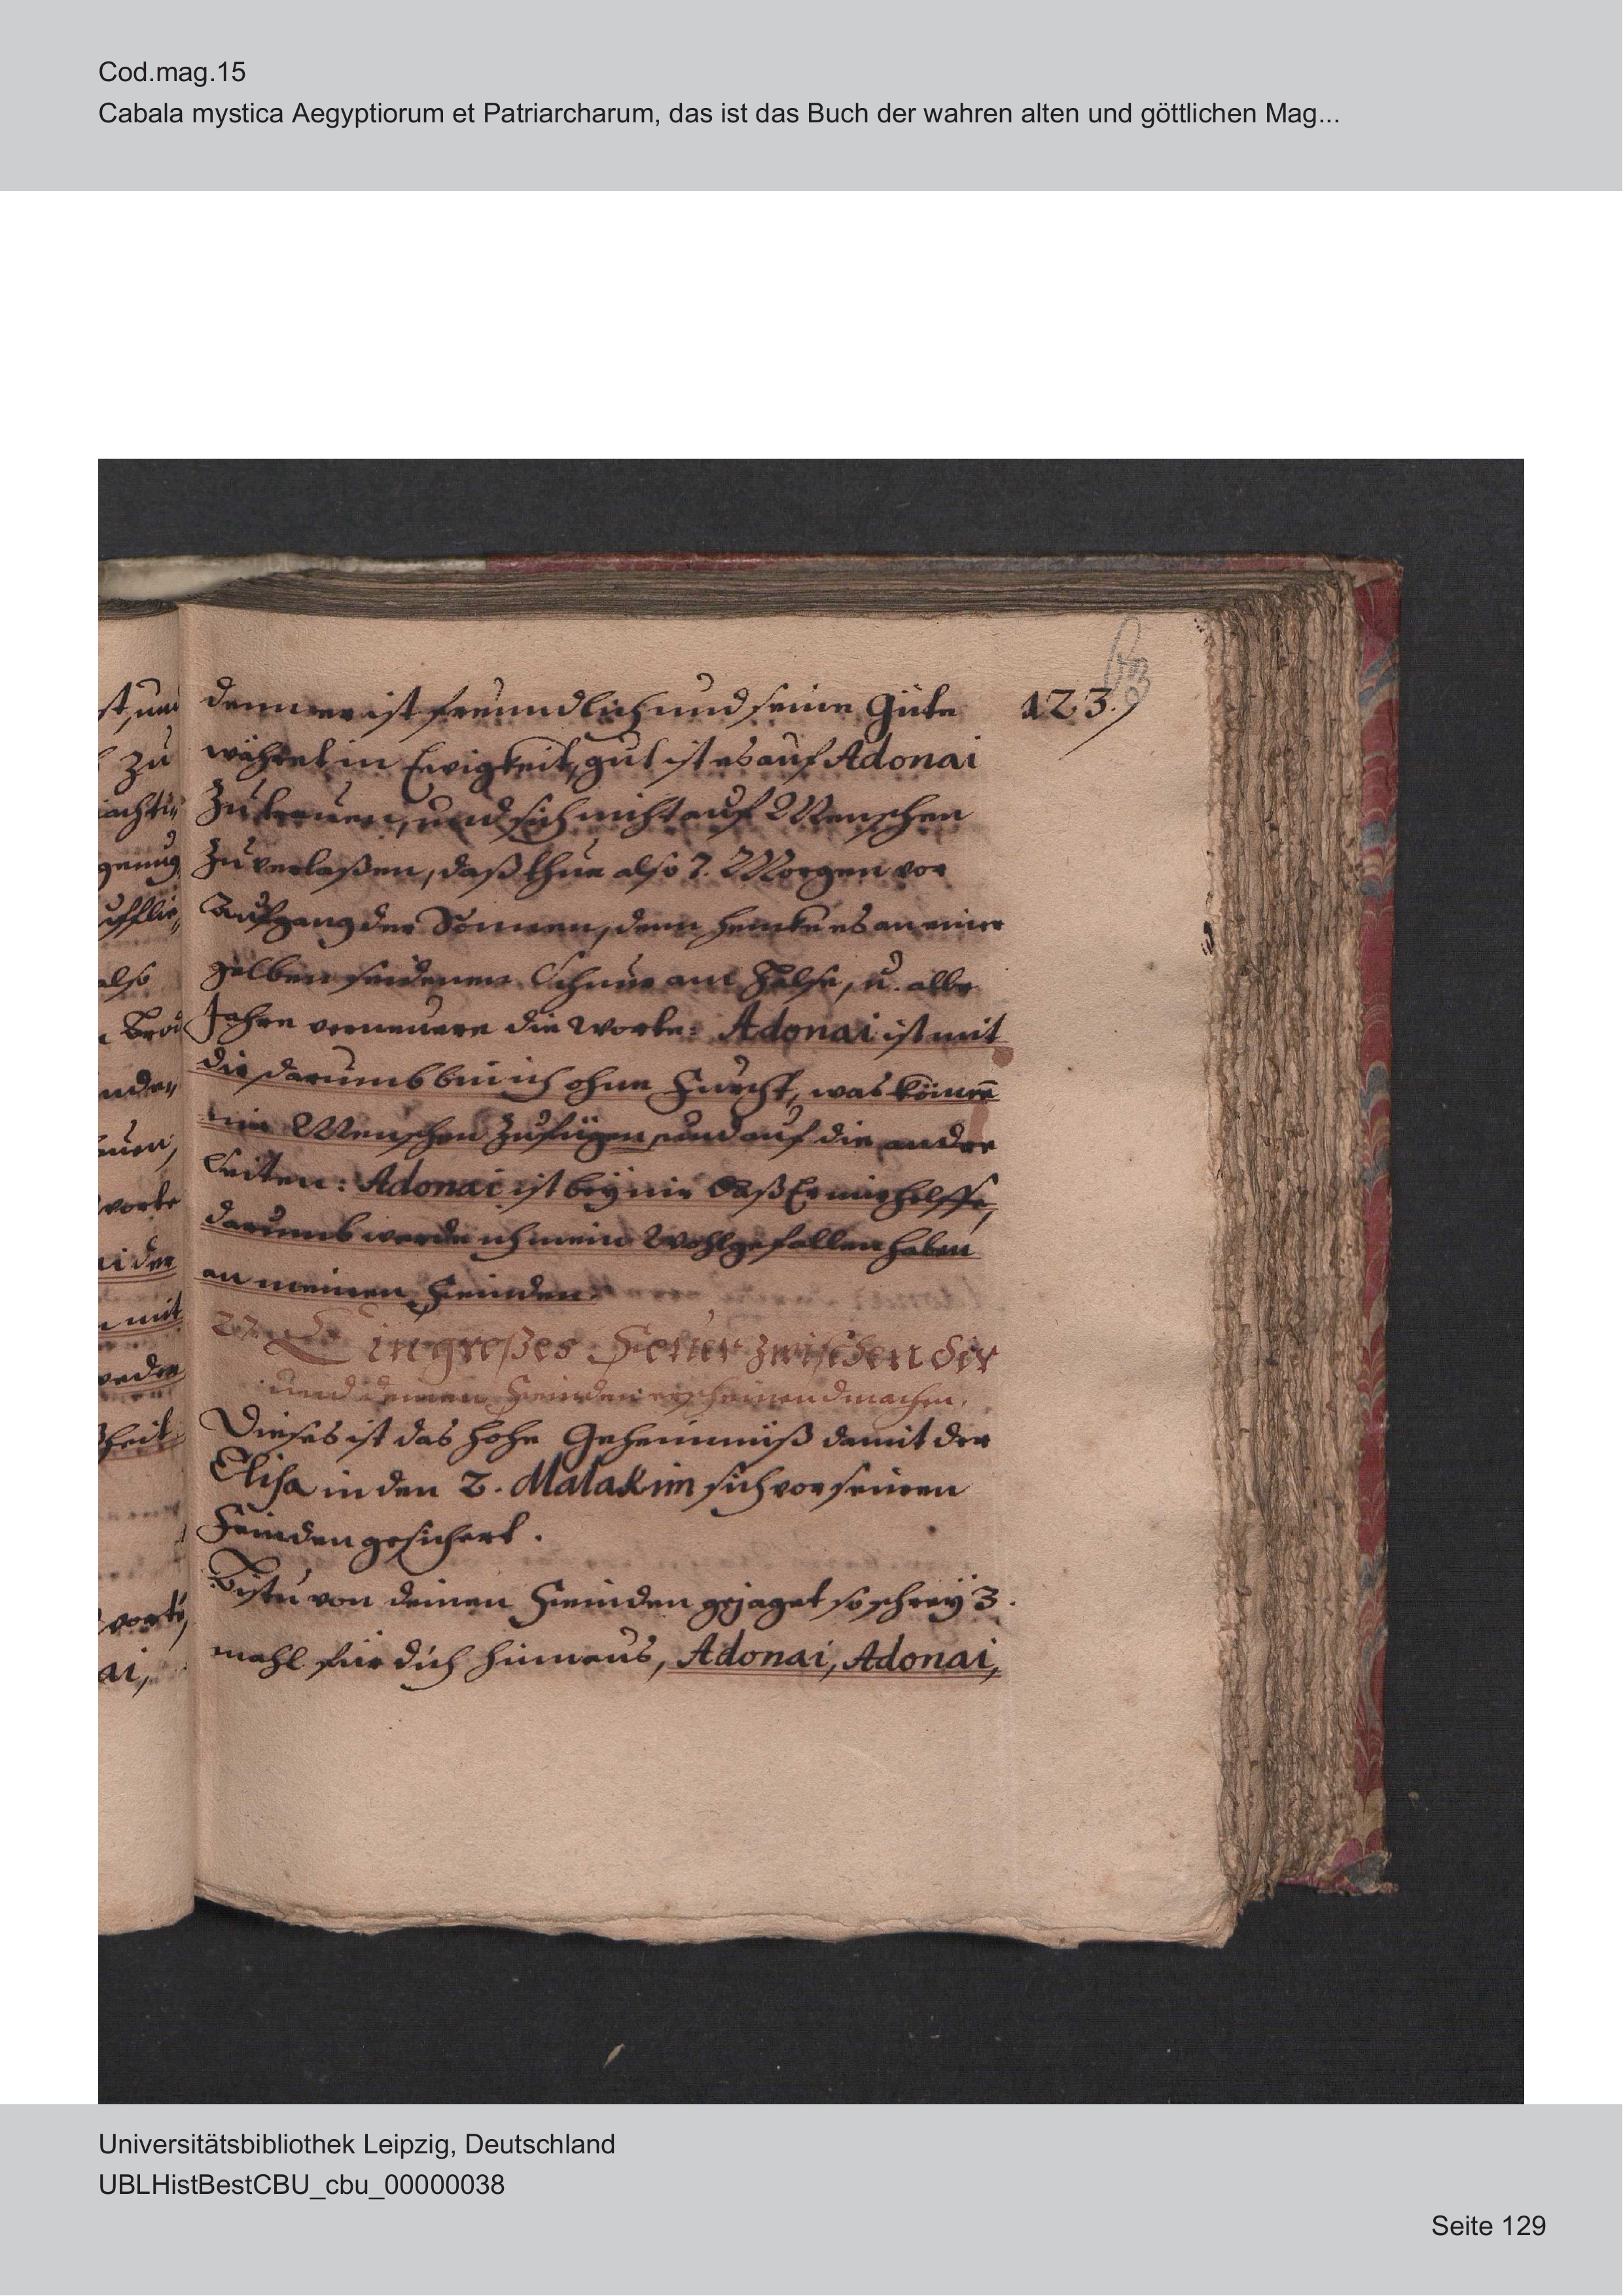 Cod.mag.15
Cabala mystica Aegyptiorum et Patriarcharum, das ist das Buch der wahren alten und göttlichen Mag...
123.
denn er ist freundlich und seine Güte
währet in Ewigkeit, gut ist es auf Adonai
Zu trauen, und sich nicht auf Menschen
Zu verlaßen, daß thue also 7. Morgen vor
Aufgang der Sonnen, denn hencke es an einer
gelben seidenen Schnur am Halse, u. alle
Jahre verneuere die Worte: Adonai ist mit
mir darumb bin ich ohne Furcht, was könnē
mir Menschen Zufügen, und auf die andre
Seiten: Adonai ist beÿ mir daß Er mir helffe,
darumb werde ich mein Wohlgefallen haben
an meinen Feinden.
27. Ein großes Feuer zwischen dir
und deinen Feinden erscheinend machen.
Dieses ist das hohe Geheimnüß damit der
Elisa in den 2. Malakim sich vor seinen
Feinden gesichert.
Bistu von deinen Feinden gejaget so schreÿ 3.
mahl für dich hinnaus, Adonai, Adonai,
st, und
zu
genug
also
nden
auen,
worte
ai der
mit
heit
ai,
Universitätsbibliothek Leipzig, Deutschland
UBLHistBestCBU_cbu_00000038
Seite 129